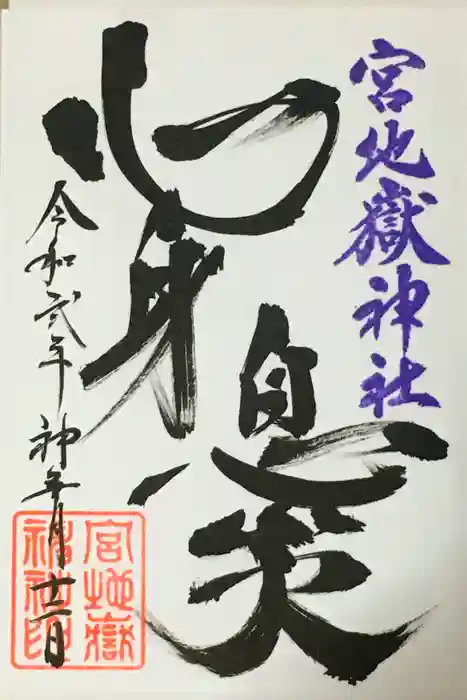 宮地嶽神社
心身
息災
令和弐年 神無月
宮地嶽
神社印